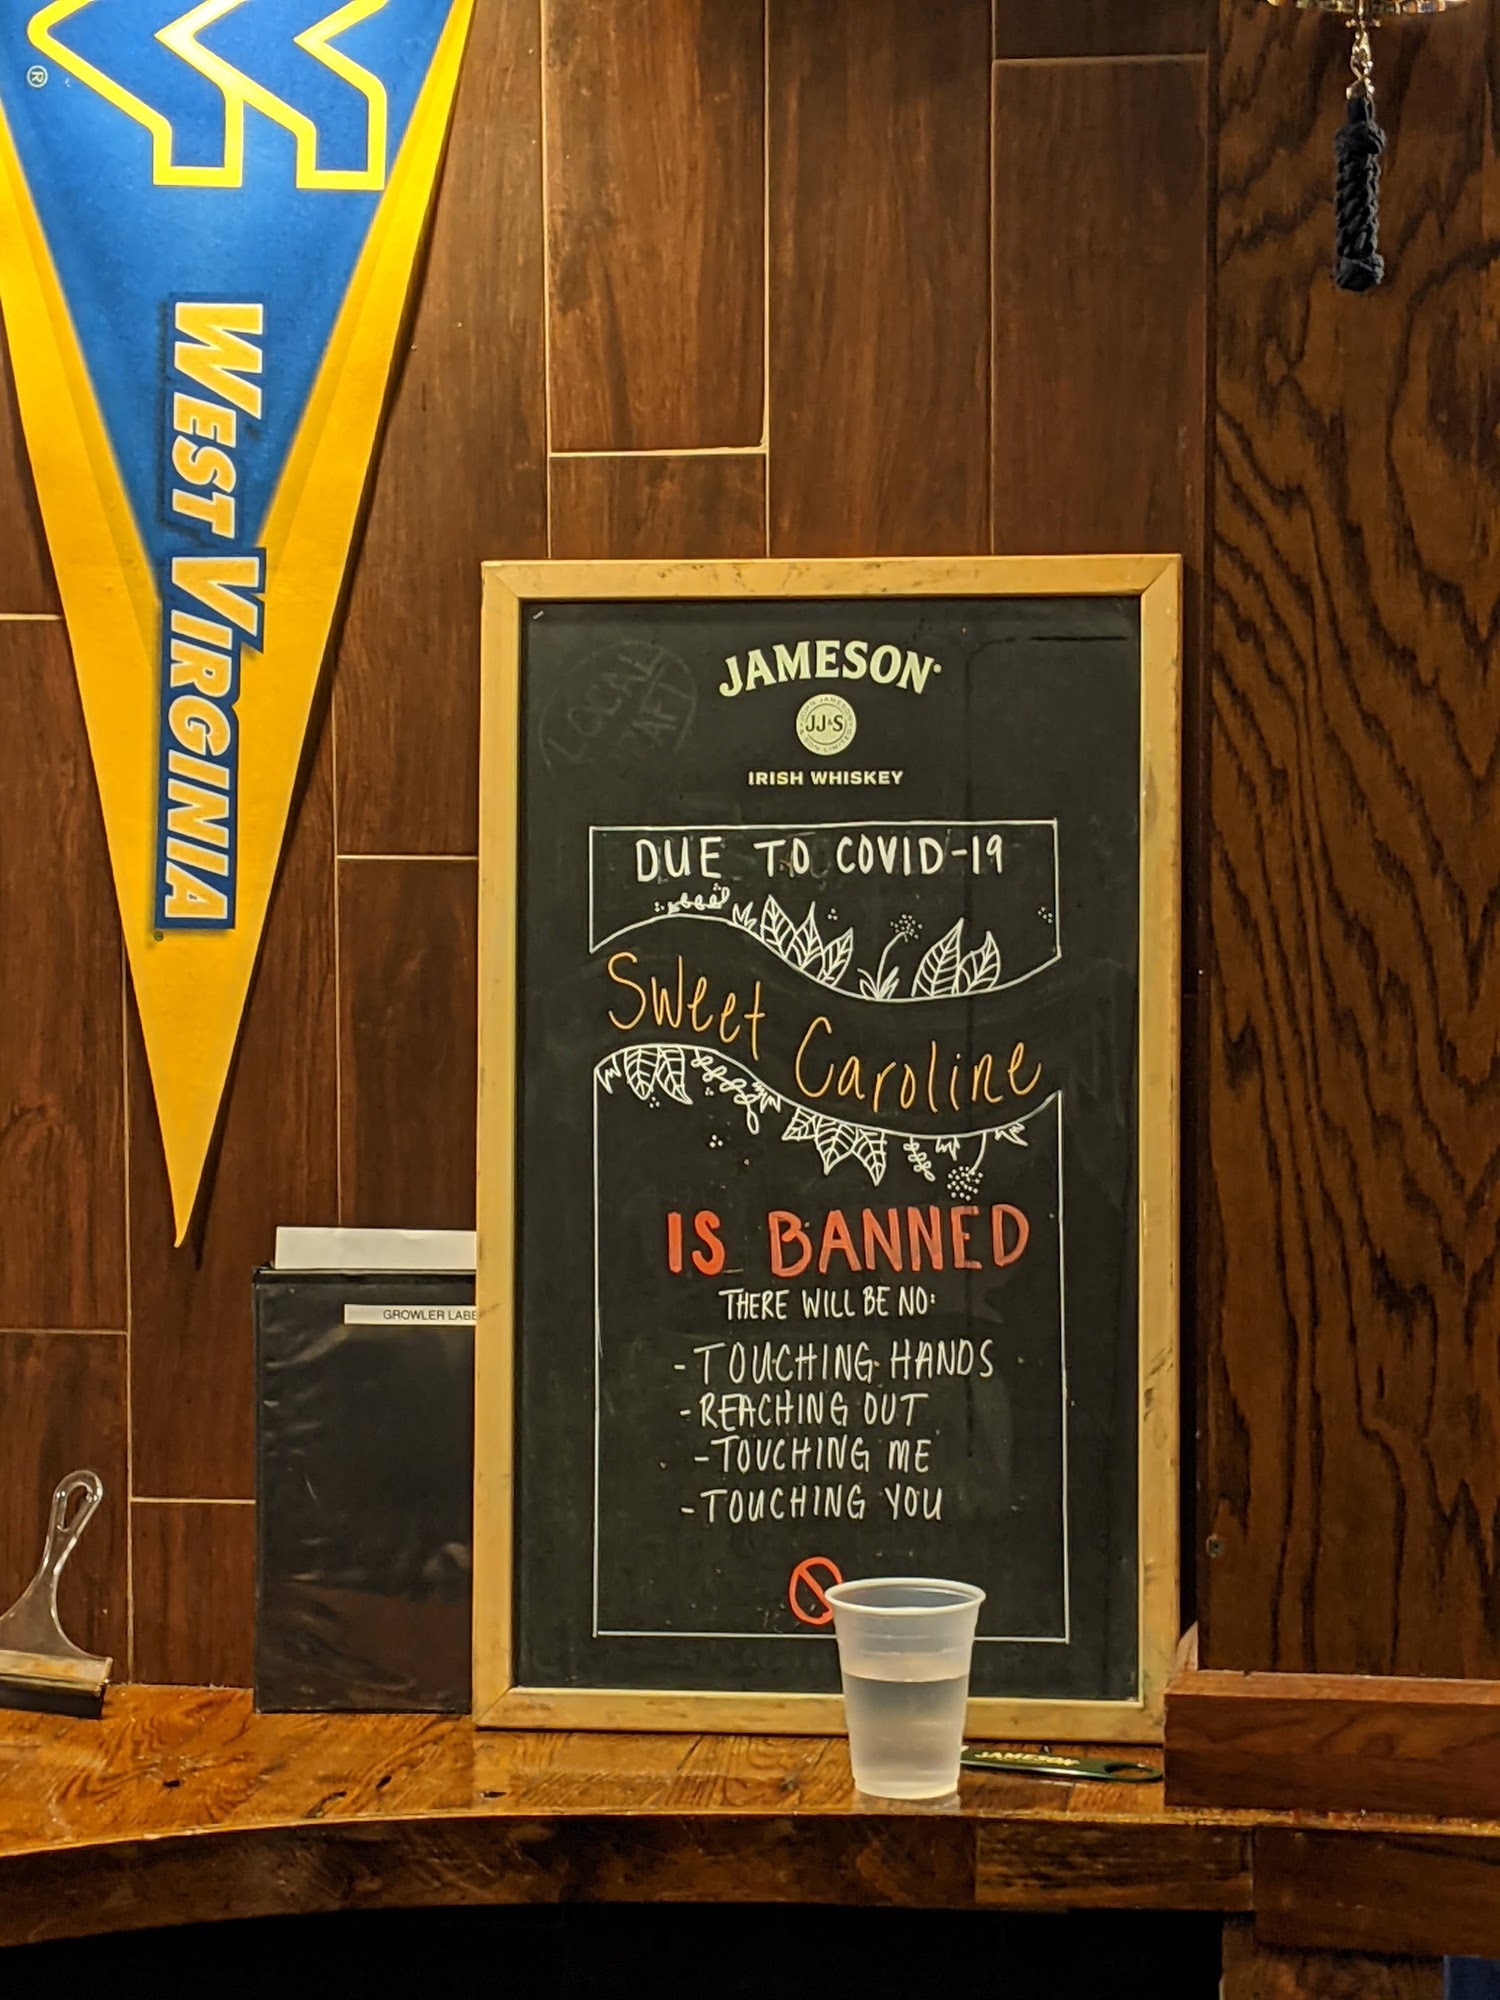 ®
WV
WEST VIRGINIA
JAMESON
JOHN JAMESON
JJ&S
& SON LIMITED
IRISH WHISKEY
LOCAL
DUE TO COVID-19
Sweet Caroline
IS BANNED
THERE WILL BE NO:
-TOUCHING HANDS
-REACHING OUT
-TOUCHING ME
-TOUCHING YOU
GROWLER LABE
JAMESON